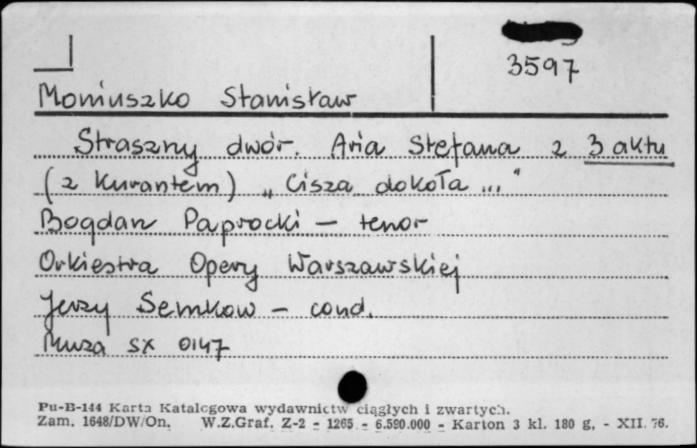 3597
Moniuszko Stanisław
Straszny dwór. Aria Stefana z 3 aktu
(z kurantem) „Cisza dokoła..."
Bogdan Paprocki – tenor
Orkiestra Opery Warszawskiej
Jerzy Semkow – cond.
Muza SX 0147
Pu-B-144 Karta Katalogowa wydawnictw ciągłych i zwartych.
Zam. 1648/DW/On, W.Z.Graf. Z-2 - 1265 - 6.590.000 - Karton 3 kl. 180 g, - XII. 76.